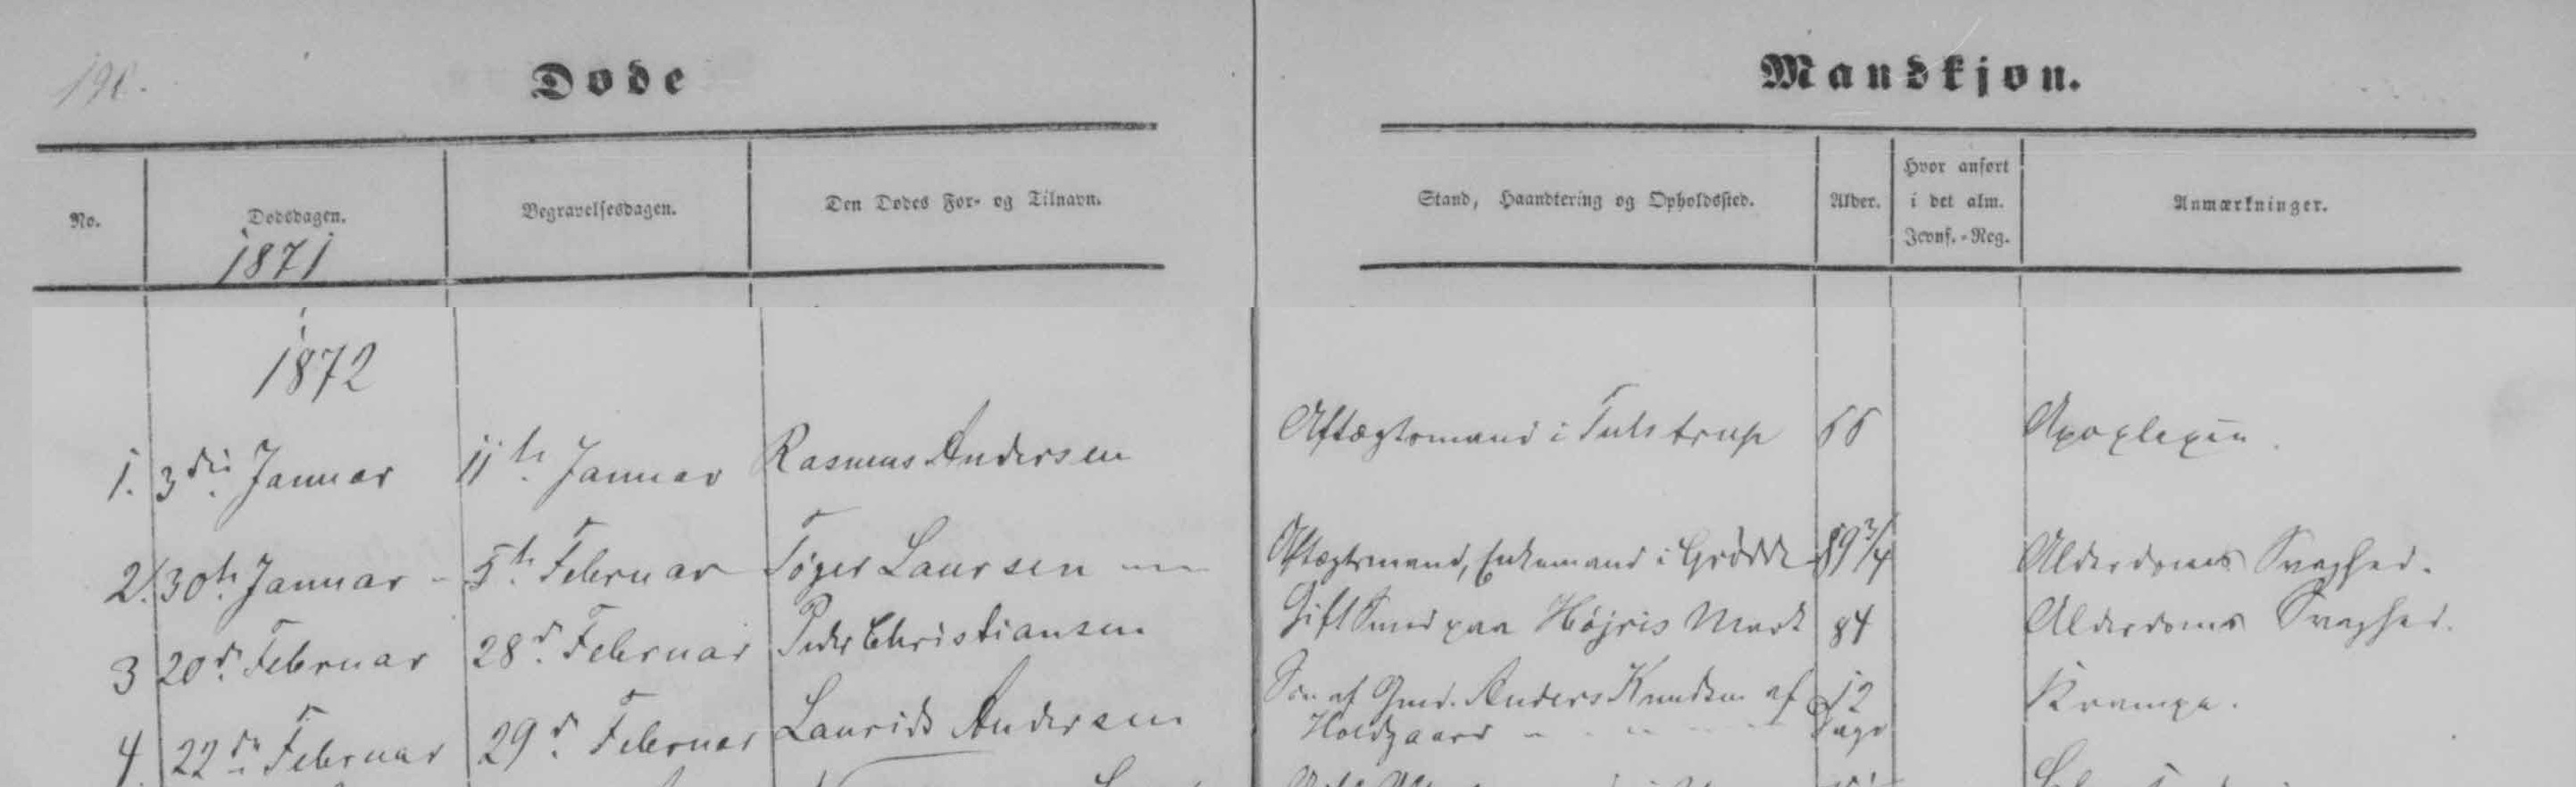 198.
Døde
Mandkjøn.
No.
Dødsdagen.
Begravelsesdagen.
Den Dødes For- og Tilnavn.
Stand, Haandtering og Opholdssted.
Alder.
Hvor anført
i det alm.
Jevnf.-Reg.
Anmærkninger.
1871
1872
1. 3die Januar 11te Januar Rasmus Andersen Aftægtsmand i Tulstrup 66 Apoplexin.
2. 30te Januar - 5te Februar Tøger Laursen Aftægtsmand, Enkemand i Grødde 89 3/4 Alderdoms Svaghed.
3 20d. Februar 28d. Februar Peder Christiansen Gift Smed paa Højris Mark 84 Alderdoms Svaghed.
4 22de Februar 29d. Februar Laurids Andersen Søn af Gmd. Anders Knudsen af 12 Krampe.
Holdgaard Dage